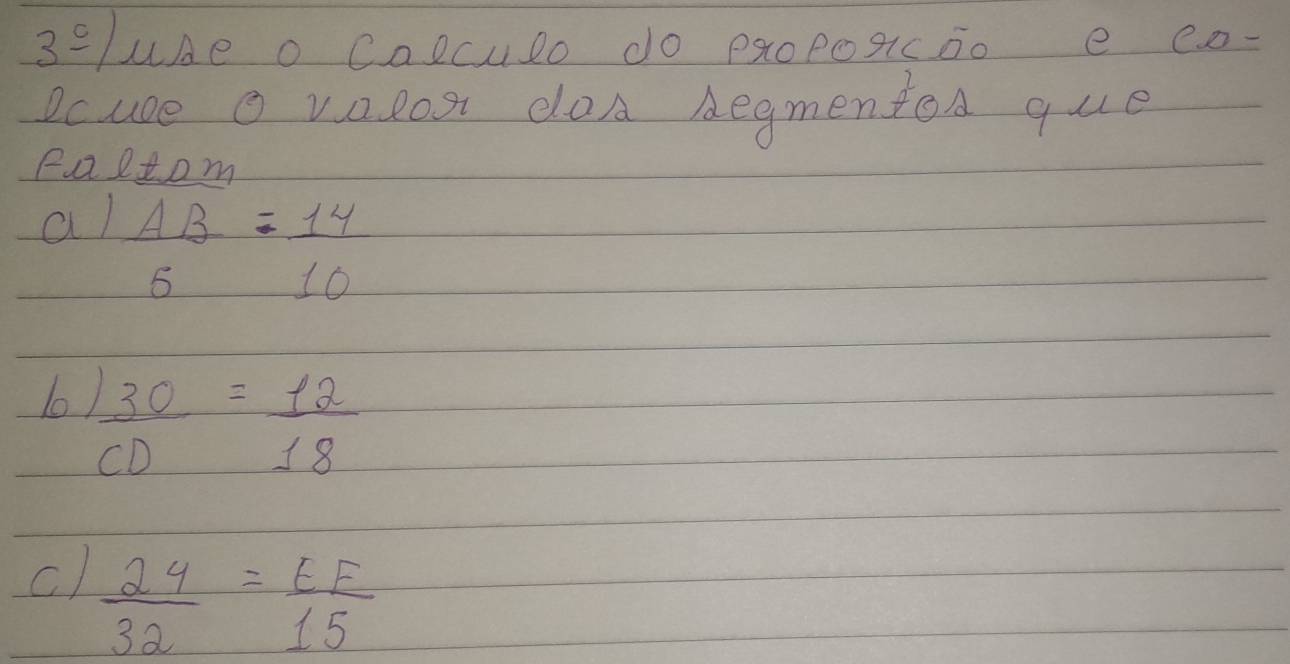 3º) use o calculo do proporcão e ca-
lcule o valor dos segmentos que
faltam
a) AB = 14
5 10
b) 30 = 12
CD 18
c) 24 = EF
32 15